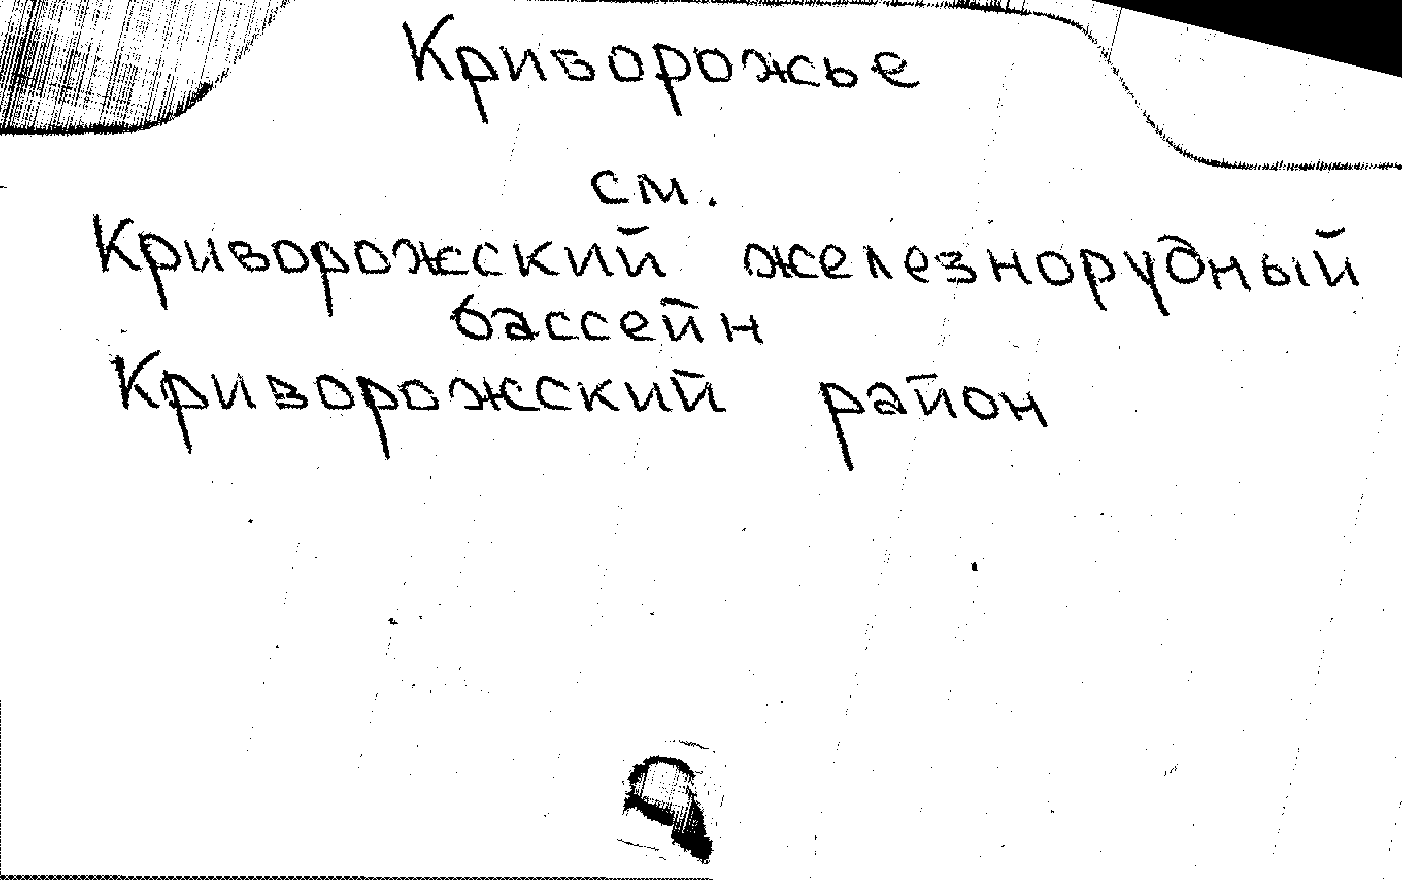 Криворожье
см.
Криворожский железнорудный
бассейн
Криворожский район